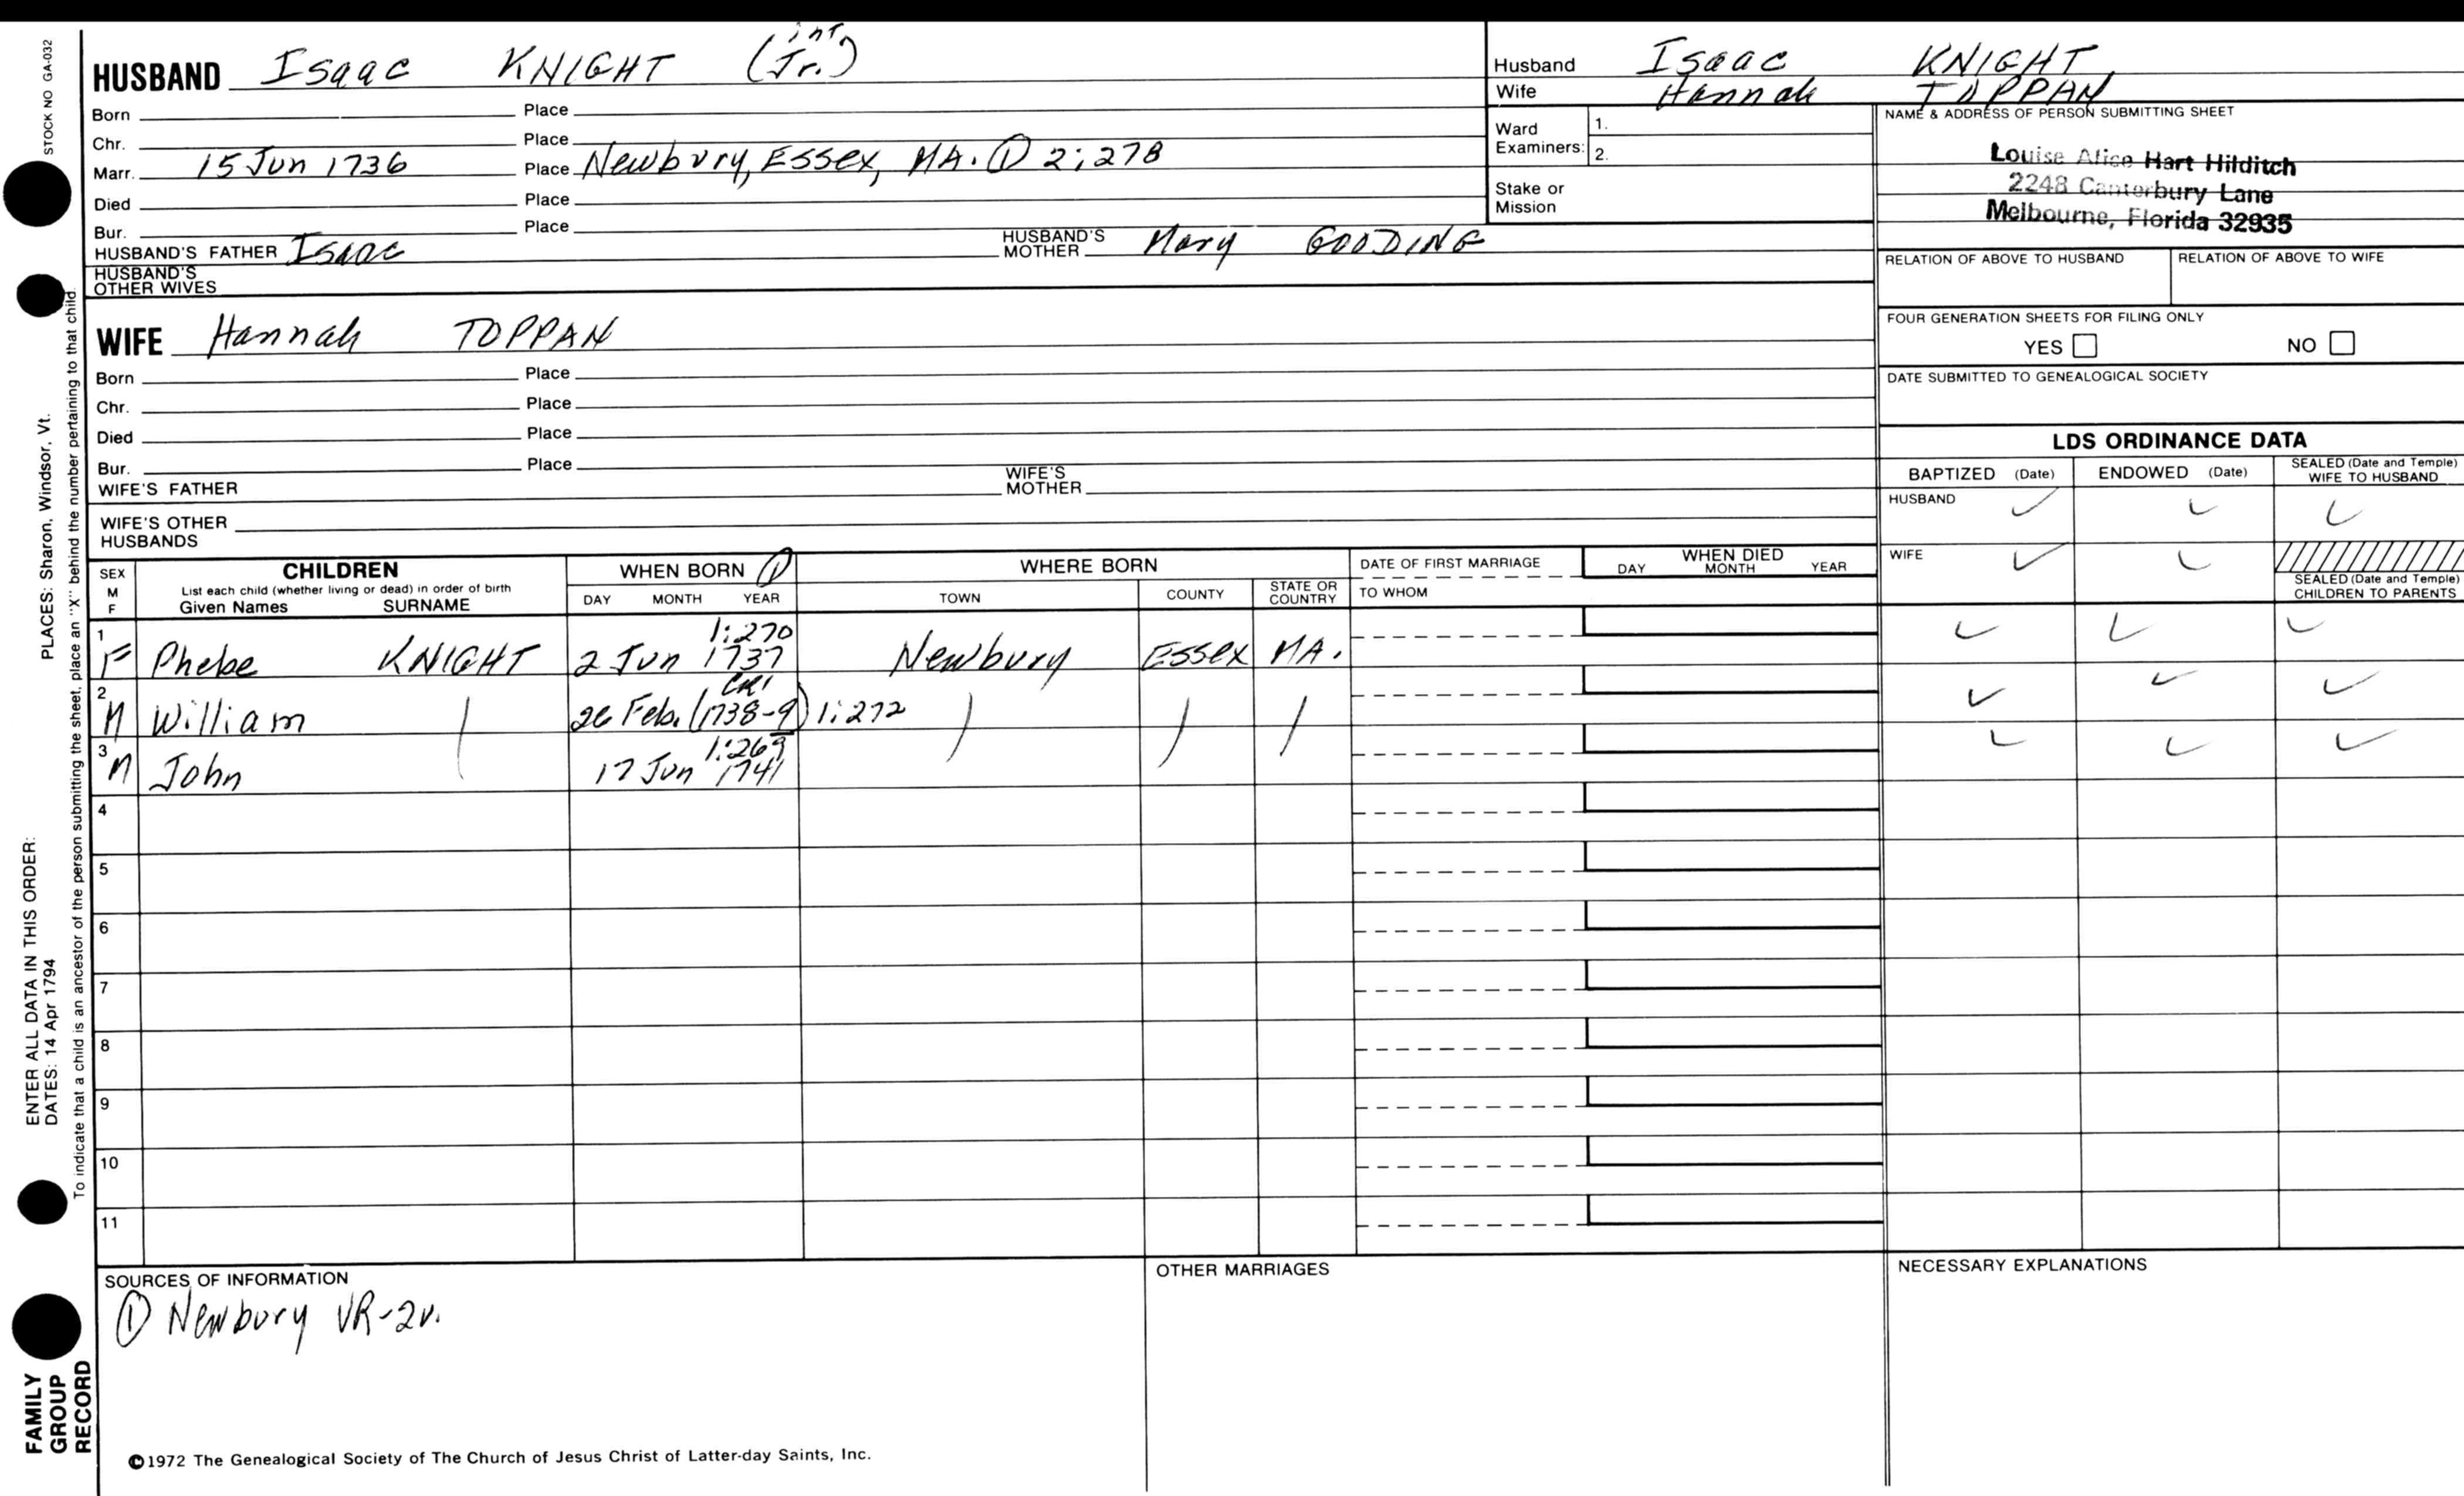 STOCK NO GA-032
PLACES: Sharon, Windsor, Vt.
ENTER ALL DATA IN THIS ORDER:
DATES: 14 Apr 1794
To indicate that a child is an ancestor of the person submitting the sheet, place an "X" behind the number pertaining to that child.
FAMILY
GROUP
RECORD
int
HUSBAND Isaac KNIGHT (Jr.)
Born Place
Chr. Place
Marr. 15 Jun 1736 Place Newbury, Essex, MA. ① 2:278
Died Place
Bur. Place
HUSBAND'S FATHER Isaac HUSBAND'S MOTHER Mary GOODING
HUSBAND'S
OTHER WIVES
WIFE Hannah TOPPAN
Born Place
Chr. Place
Died Place
Bur. Place
WIFE'S FATHER WIFE'S MOTHER
WIFE'S OTHER
HUSBANDS
Husband Isaac KNIGHT
Wife Hannah TOPPAN
Ward
Examiners:
1.
2.
Stake or
Mission
NAME & ADDRESS OF PERSON SUBMITTING SHEET
Louise Alice Hart Hilditch
2248 Canterbury Lane
Melbourne, Florida 32935
RELATION OF ABOVE TO HUSBAND RELATION OF ABOVE TO WIFE
FOUR GENERATION SHEETS FOR FILING ONLY
YES NO
DATE SUBMITTED TO GENEALOGICAL SOCIETY
LDS ORDINANCE DATA
BAPTIZED (Date) ENDOWED (Date) SEALED (Date and Temple) WIFE TO HUSBAND
HUSBAND ✓ ✓ ✓
WIFE ✓ ✓
SEALED (Date and Temple)
CHILDREN TO PARENTS
SEX
M
F
CHILDREN
List each child (whether living or dead) in order of birth
Given Names SURNAME
WHEN BORN ①
DAY MONTH YEAR
WHERE BORN
TOWN COUNTY STATE OR COUNTRY
DATE OF FIRST MARRIAGE
TO WHOM
WHEN DIED
DAY MONTH YEAR
1 1:270
F Phebe KNIGHT 2 Jun 1737 Newbury Essex MA. ✓ ✓ ✓
2 CR1
M William 26 Feb. (1738-9) 1:272 ✓ ✓ ✓
3 1:269
M John 17 Jun 1741 ✓ ✓ ✓
4
5
6
7
8
9
10
11
SOURCES OF INFORMATION
① Newbury VR-2v.
OTHER MARRIAGES
NECESSARY EXPLANATIONS
©1972 The Genealogical Society of The Church of Jesus Christ of Latter-day Saints, Inc.